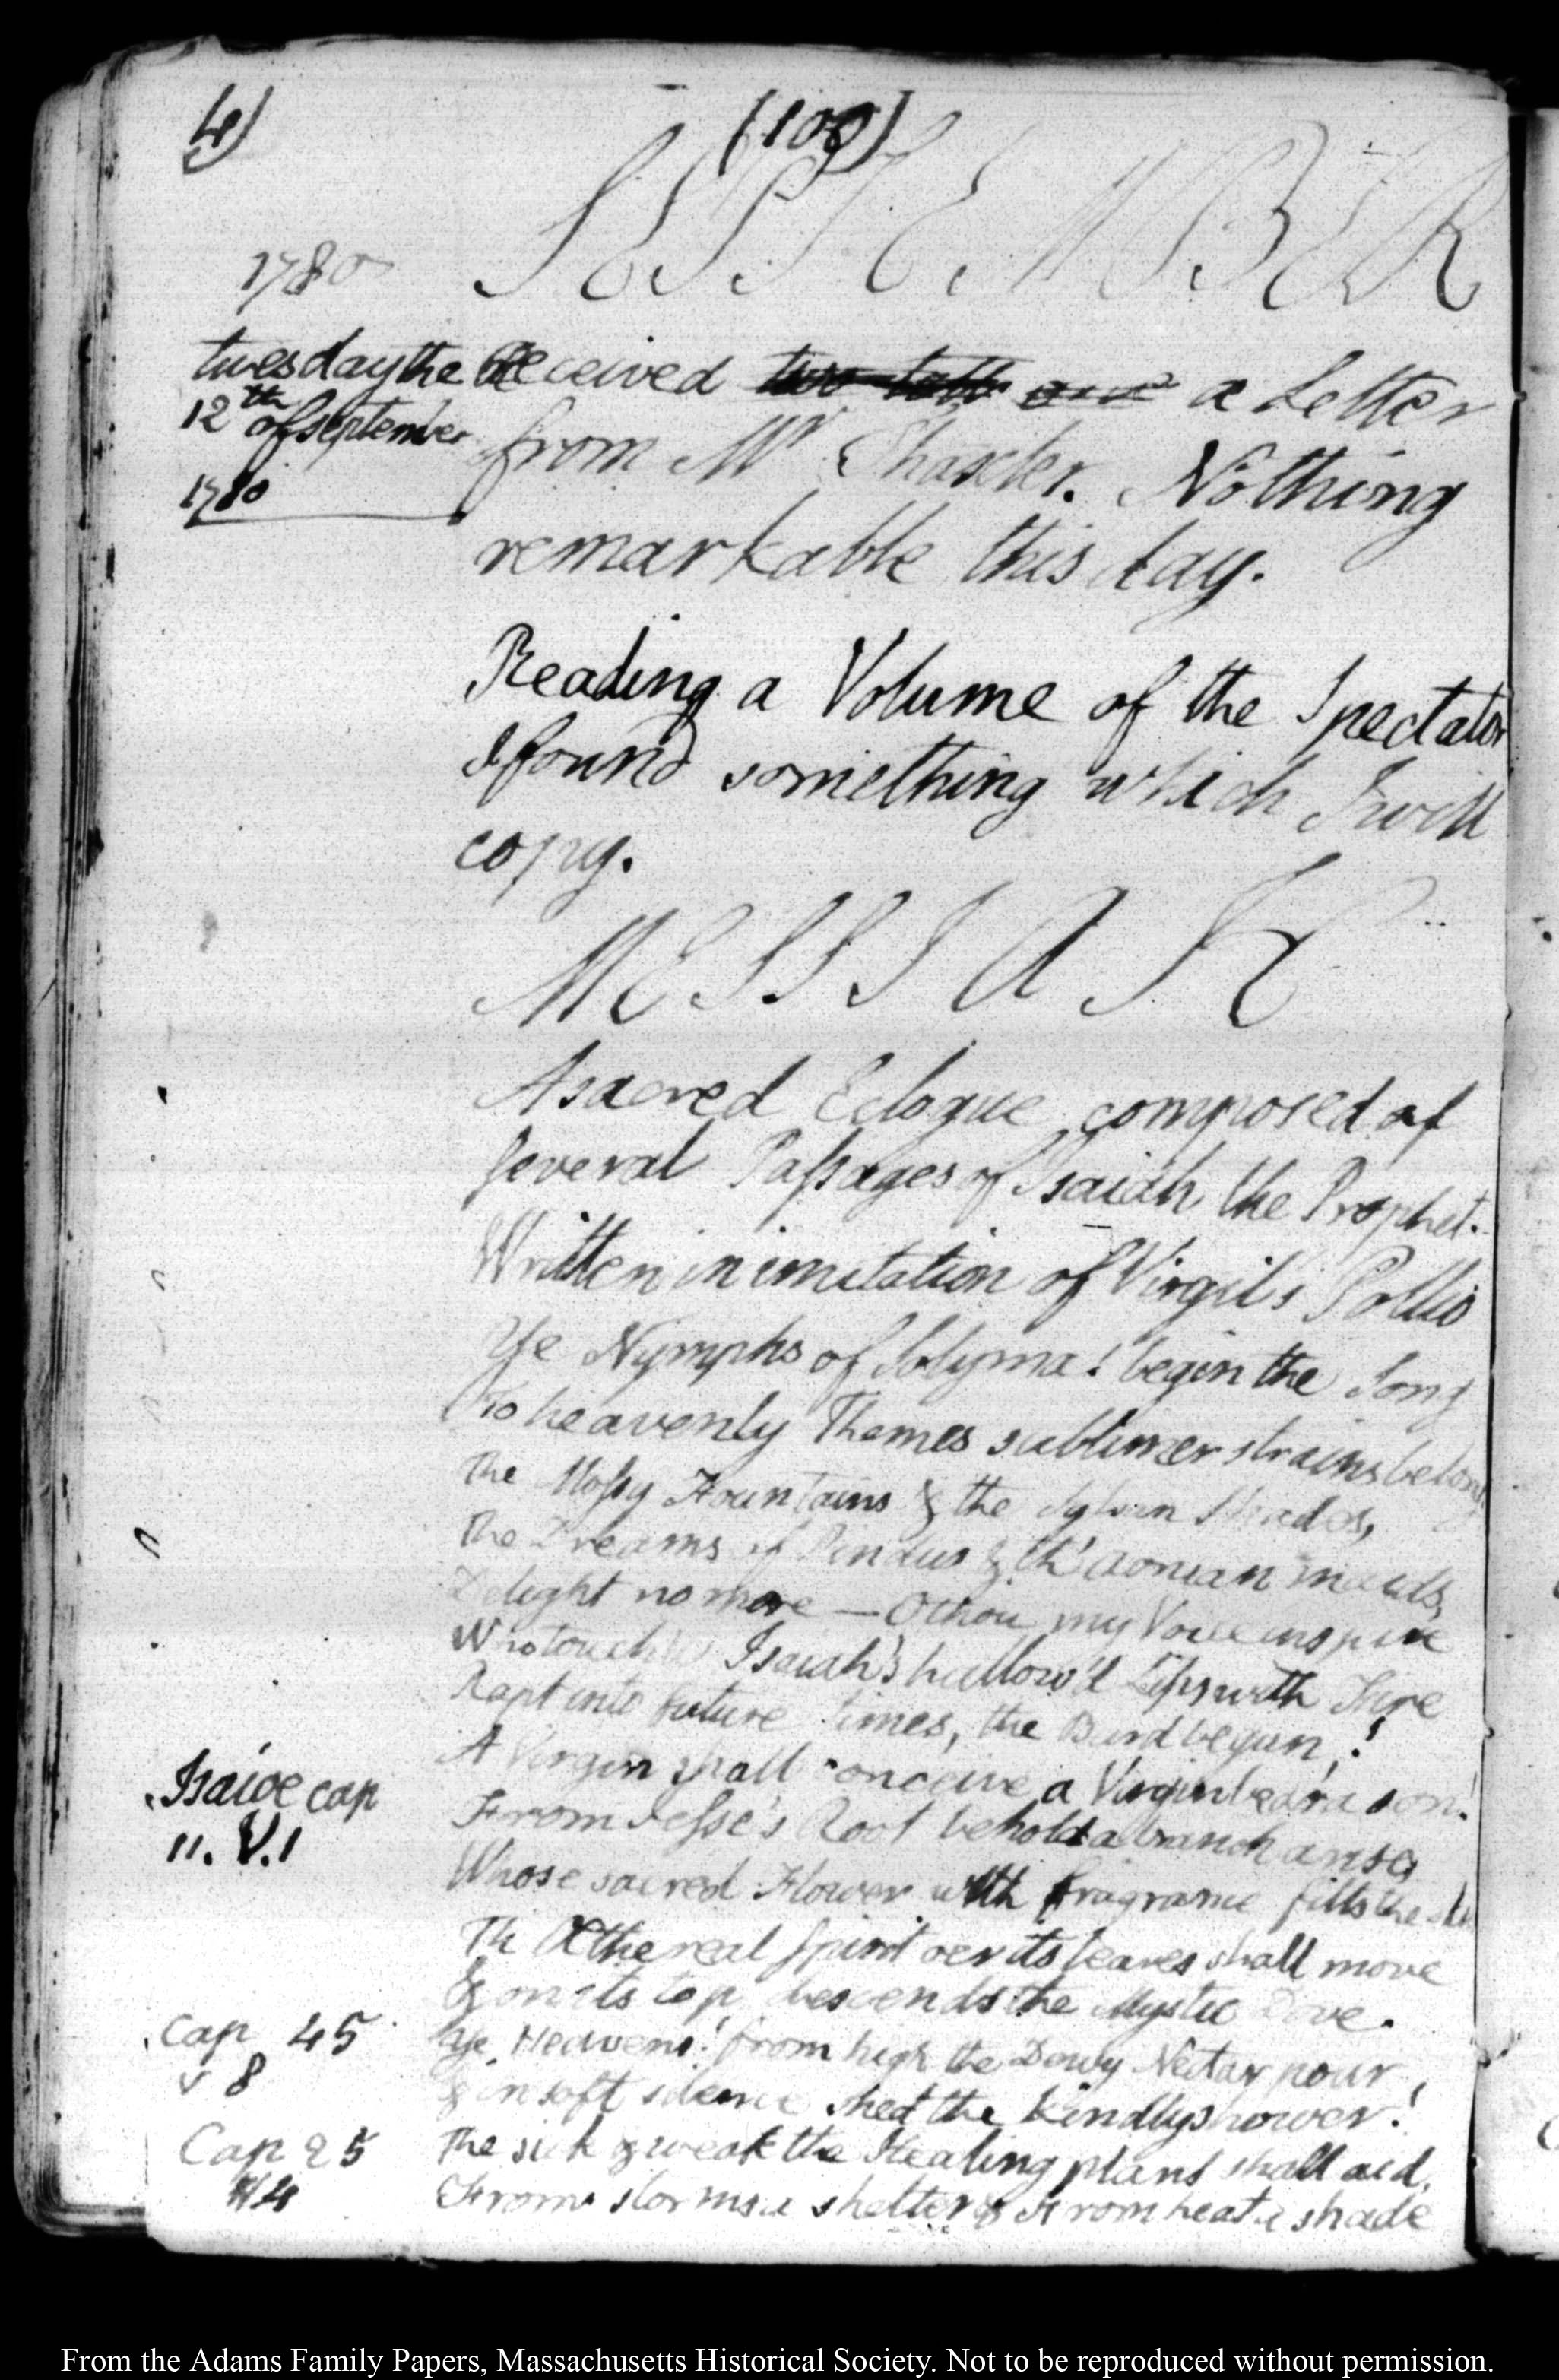 4)
(100)
1780
SEPTEMBER
tuesday the
12th of september
1780
Received two lett one a Letter
from Mr Thaxter. Nothing
remarkable this day.
Reading a Volume of the Spectator
I found something which I will
copy.
MESSIAH
A sacred Eclogue composed of
several Passages of Isaiah the Prophet.
Written in imitation of Virgils Pollio
Ye Nymphs of Solyma! begin the Song
To heavenly Themes sublimer strains belong
The Mossy Fountains & the Sylvan Shades,
The Dreams of Pindus & th' Aonian maids,
Delight no more — O thou my Voice inspire
Who touch'd Isaiah's hallow'd Lips with Fire
Rapt into future times, the Bard begun,!
A Virgin shall conceive a Virgin bear a son!
Isaiæ cap
11. V. 1
From Jesse's Root behold a branch arise,
Whose sacred Flower with fragrance fills the
Th Æthereal spirit oer its leaves shall move
& on its top descends the Mystic Dove.
Cap 45
v 8
Ye Heavens! from high the Dewy Nectar pour,
& in soft silence shed the kindly shower!
Cap 25
V 4
The sick & weak the Healing plant shall aid,
From storms a shelter & From heat a shade
From the Adams Family Papers, Massachusetts Historical Society. Not to be reproduced without permission.